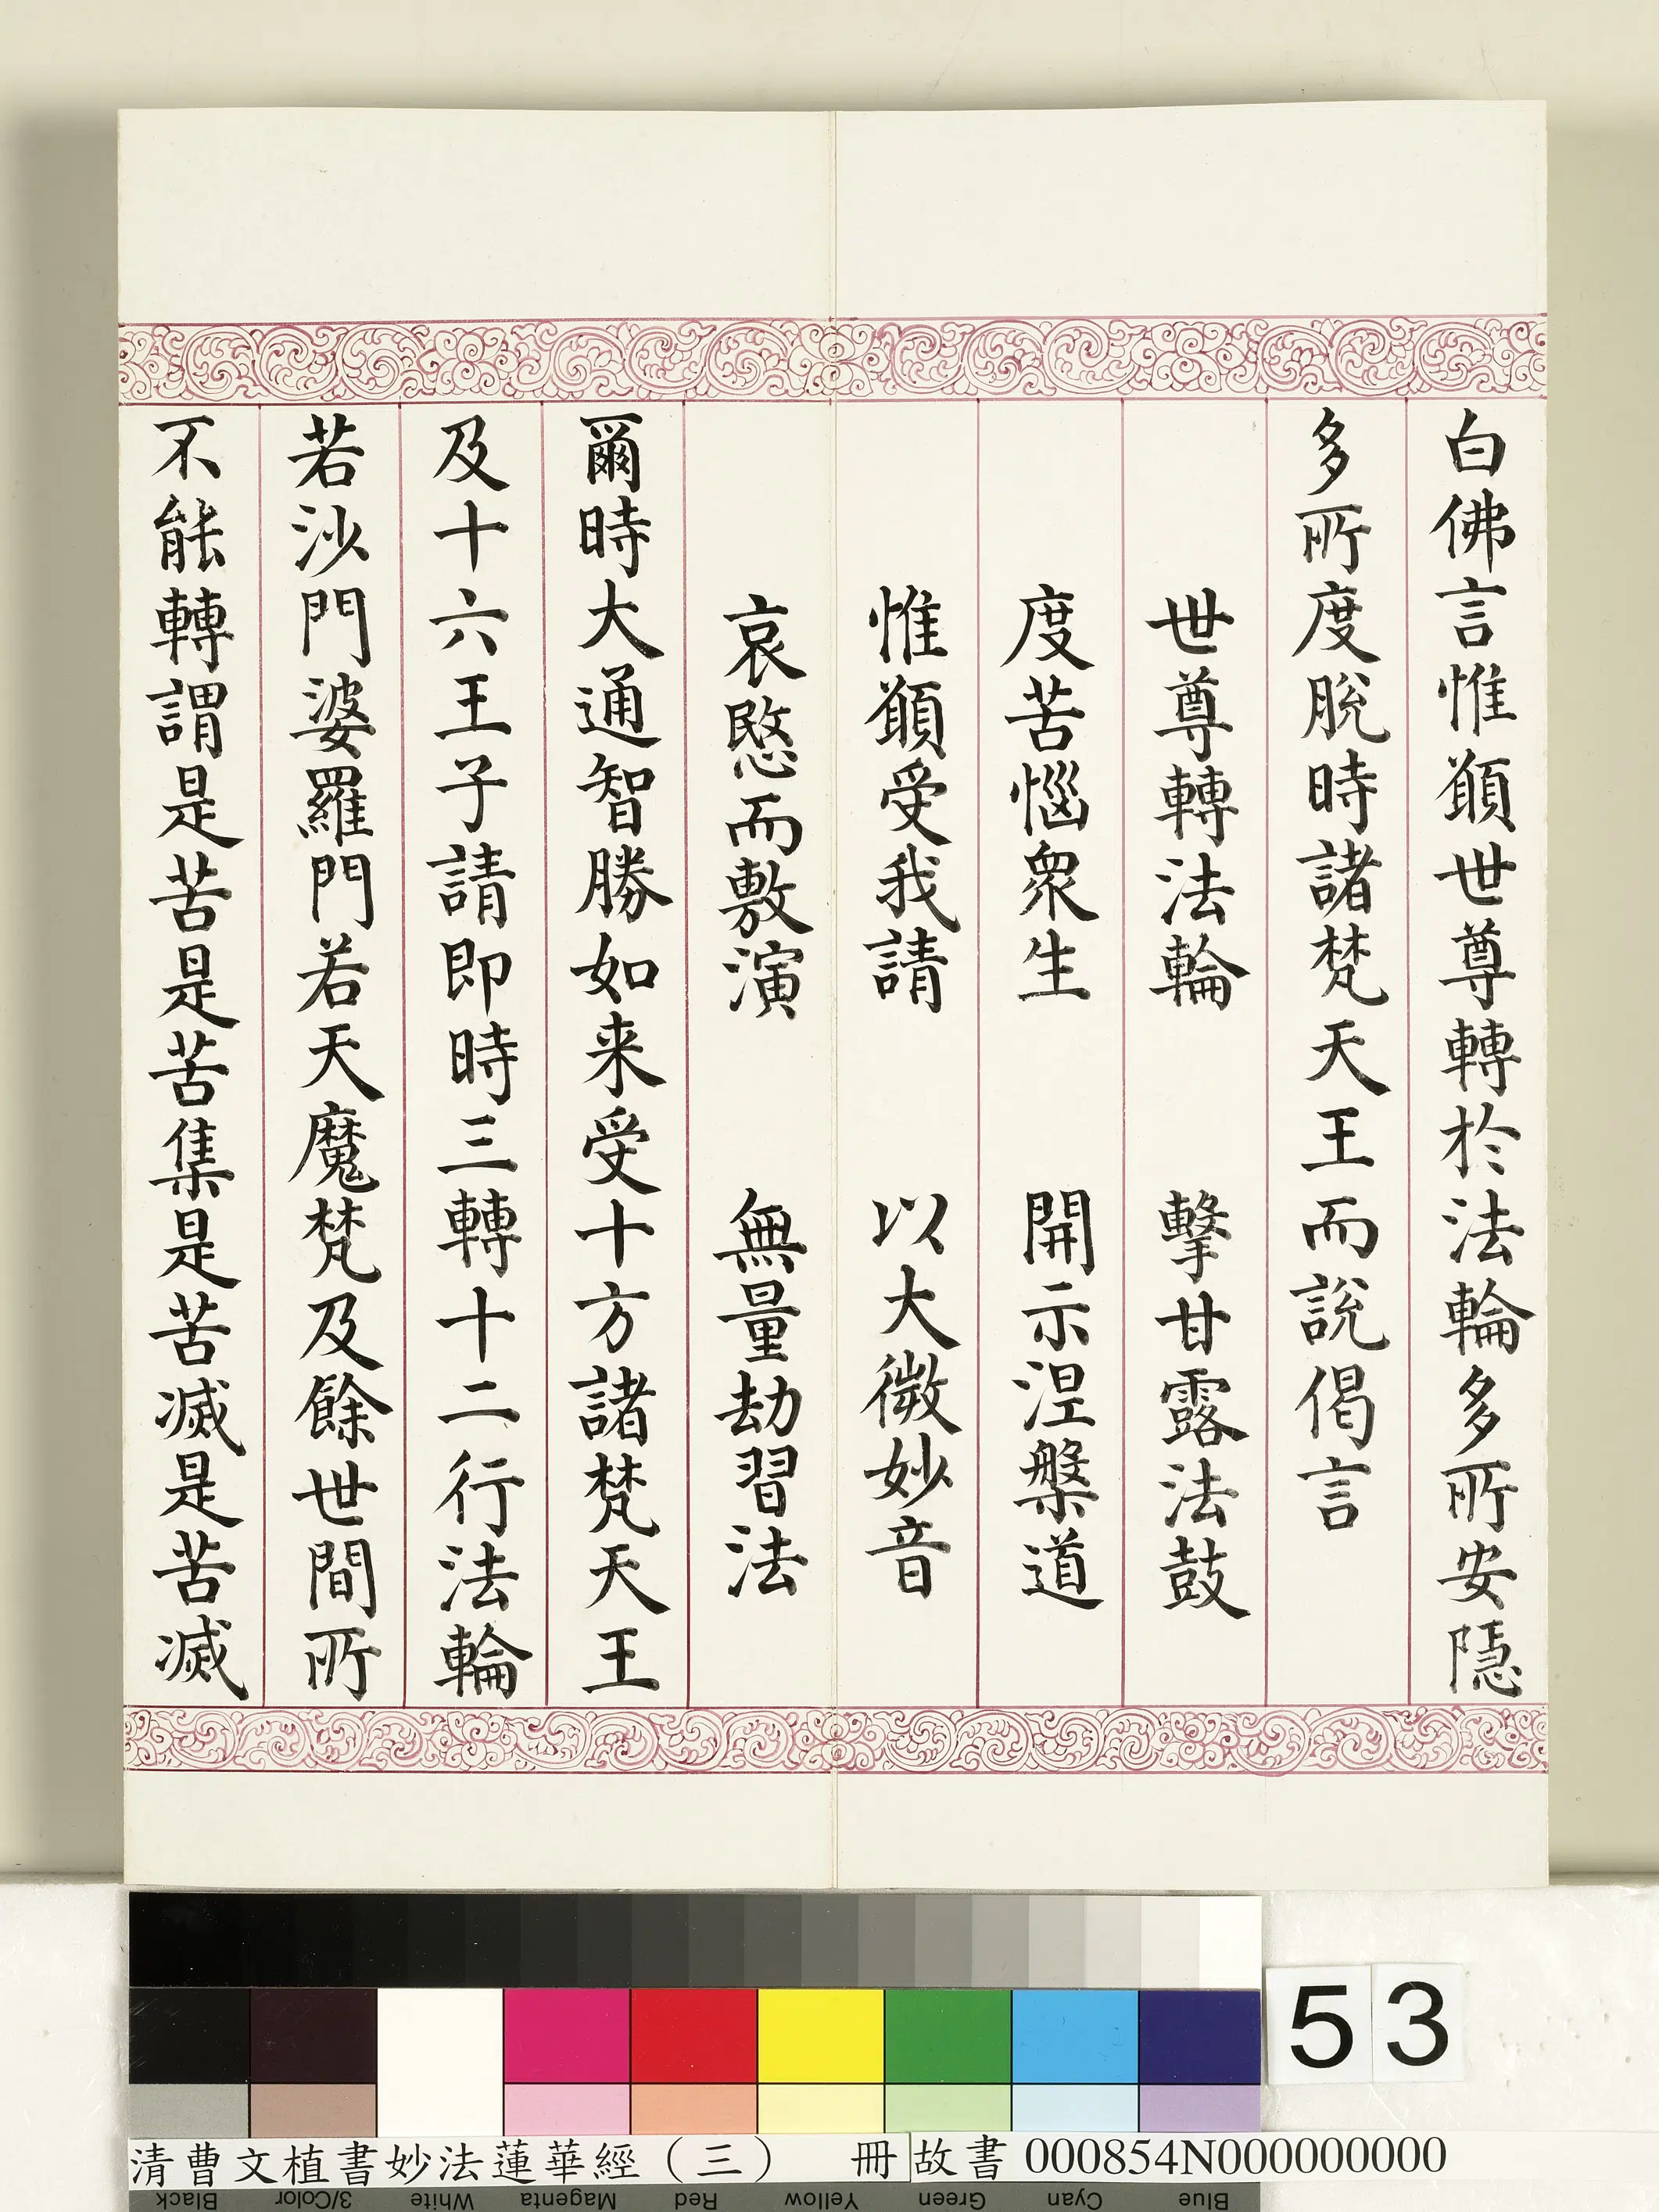 白佛言惟願世尊轉於法輪多所安隱
多所度脫時諸梵天王而說偈言
世尊轉法輪　擊甘露法鼓
度苦惱衆生　開示涅槃道
惟願受我請　以大微妙音
哀愍而敷演　無量劫習法
爾時大通智勝如来受十方諸梵天王
及十六王子請即時三轉十二行法輪
若沙門婆羅門若天魔梵及餘世間所
不能轉謂是苦是苦集是苦滅是苦滅
53
清曹文植書妙法蓮華經（三）　冊 故書 000854N000000000
Black 3/Color White Magenta Red Yellow Green Cyan Blue